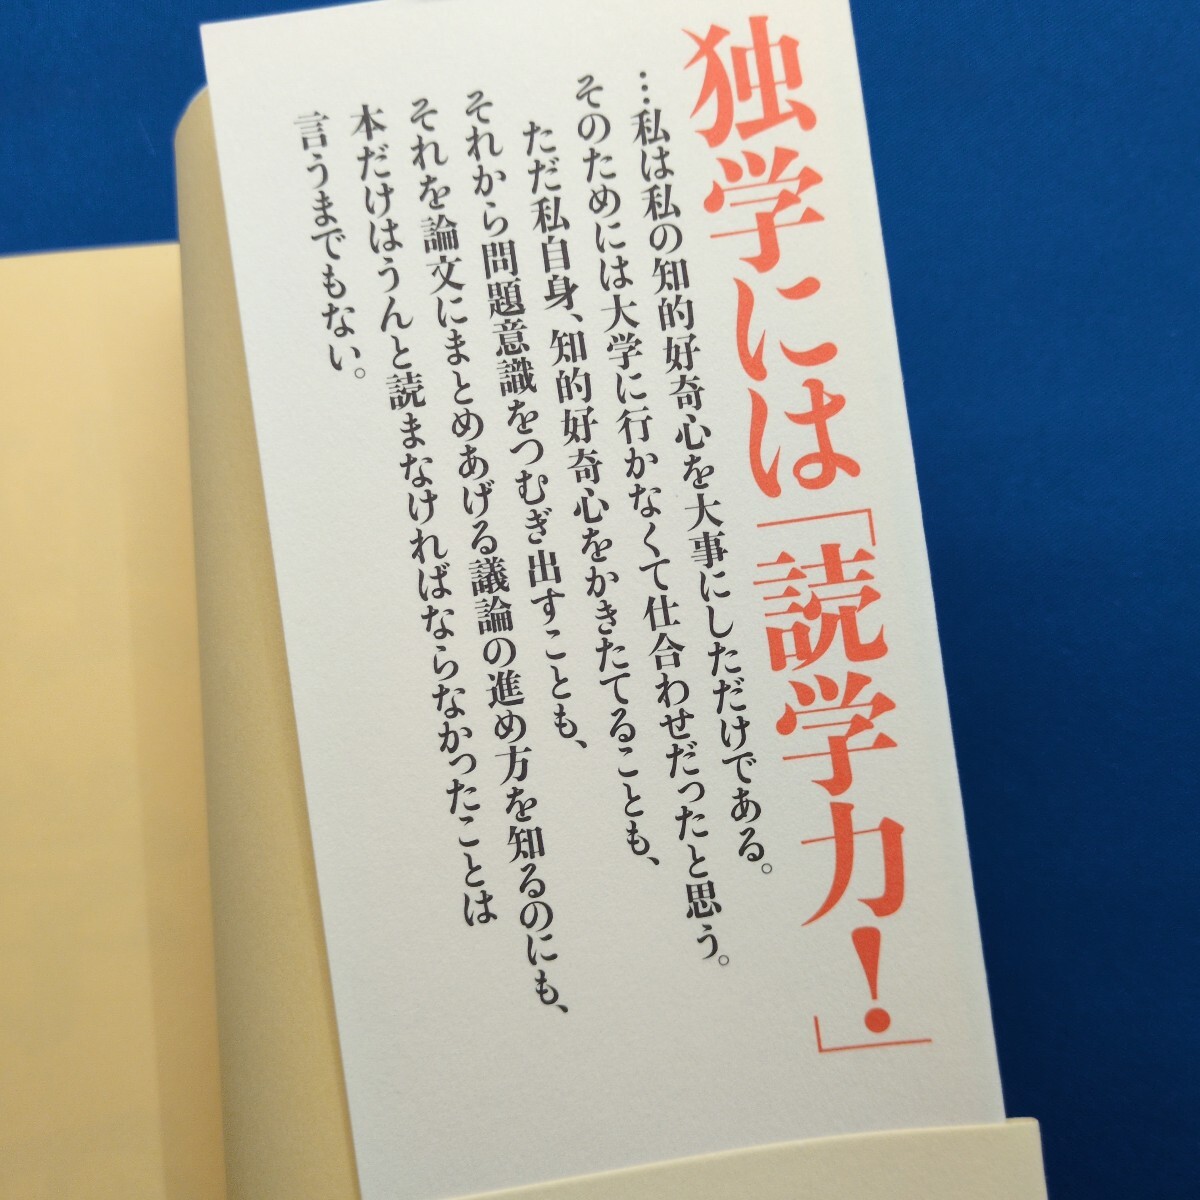 独学には「読学力！」
…私は私の知的好奇心を大事にしただけである。
そのためには大学に行かなくて仕合わせだったと思う。
ただ私自身、知的好奇心をかきたてることも、
それから問題意識をつむぎ出すことも、
それを論文にまとめあげる議論の進め方を知るのにも、
本だけはうんと読まなければならなかったことは
言うまでもない。